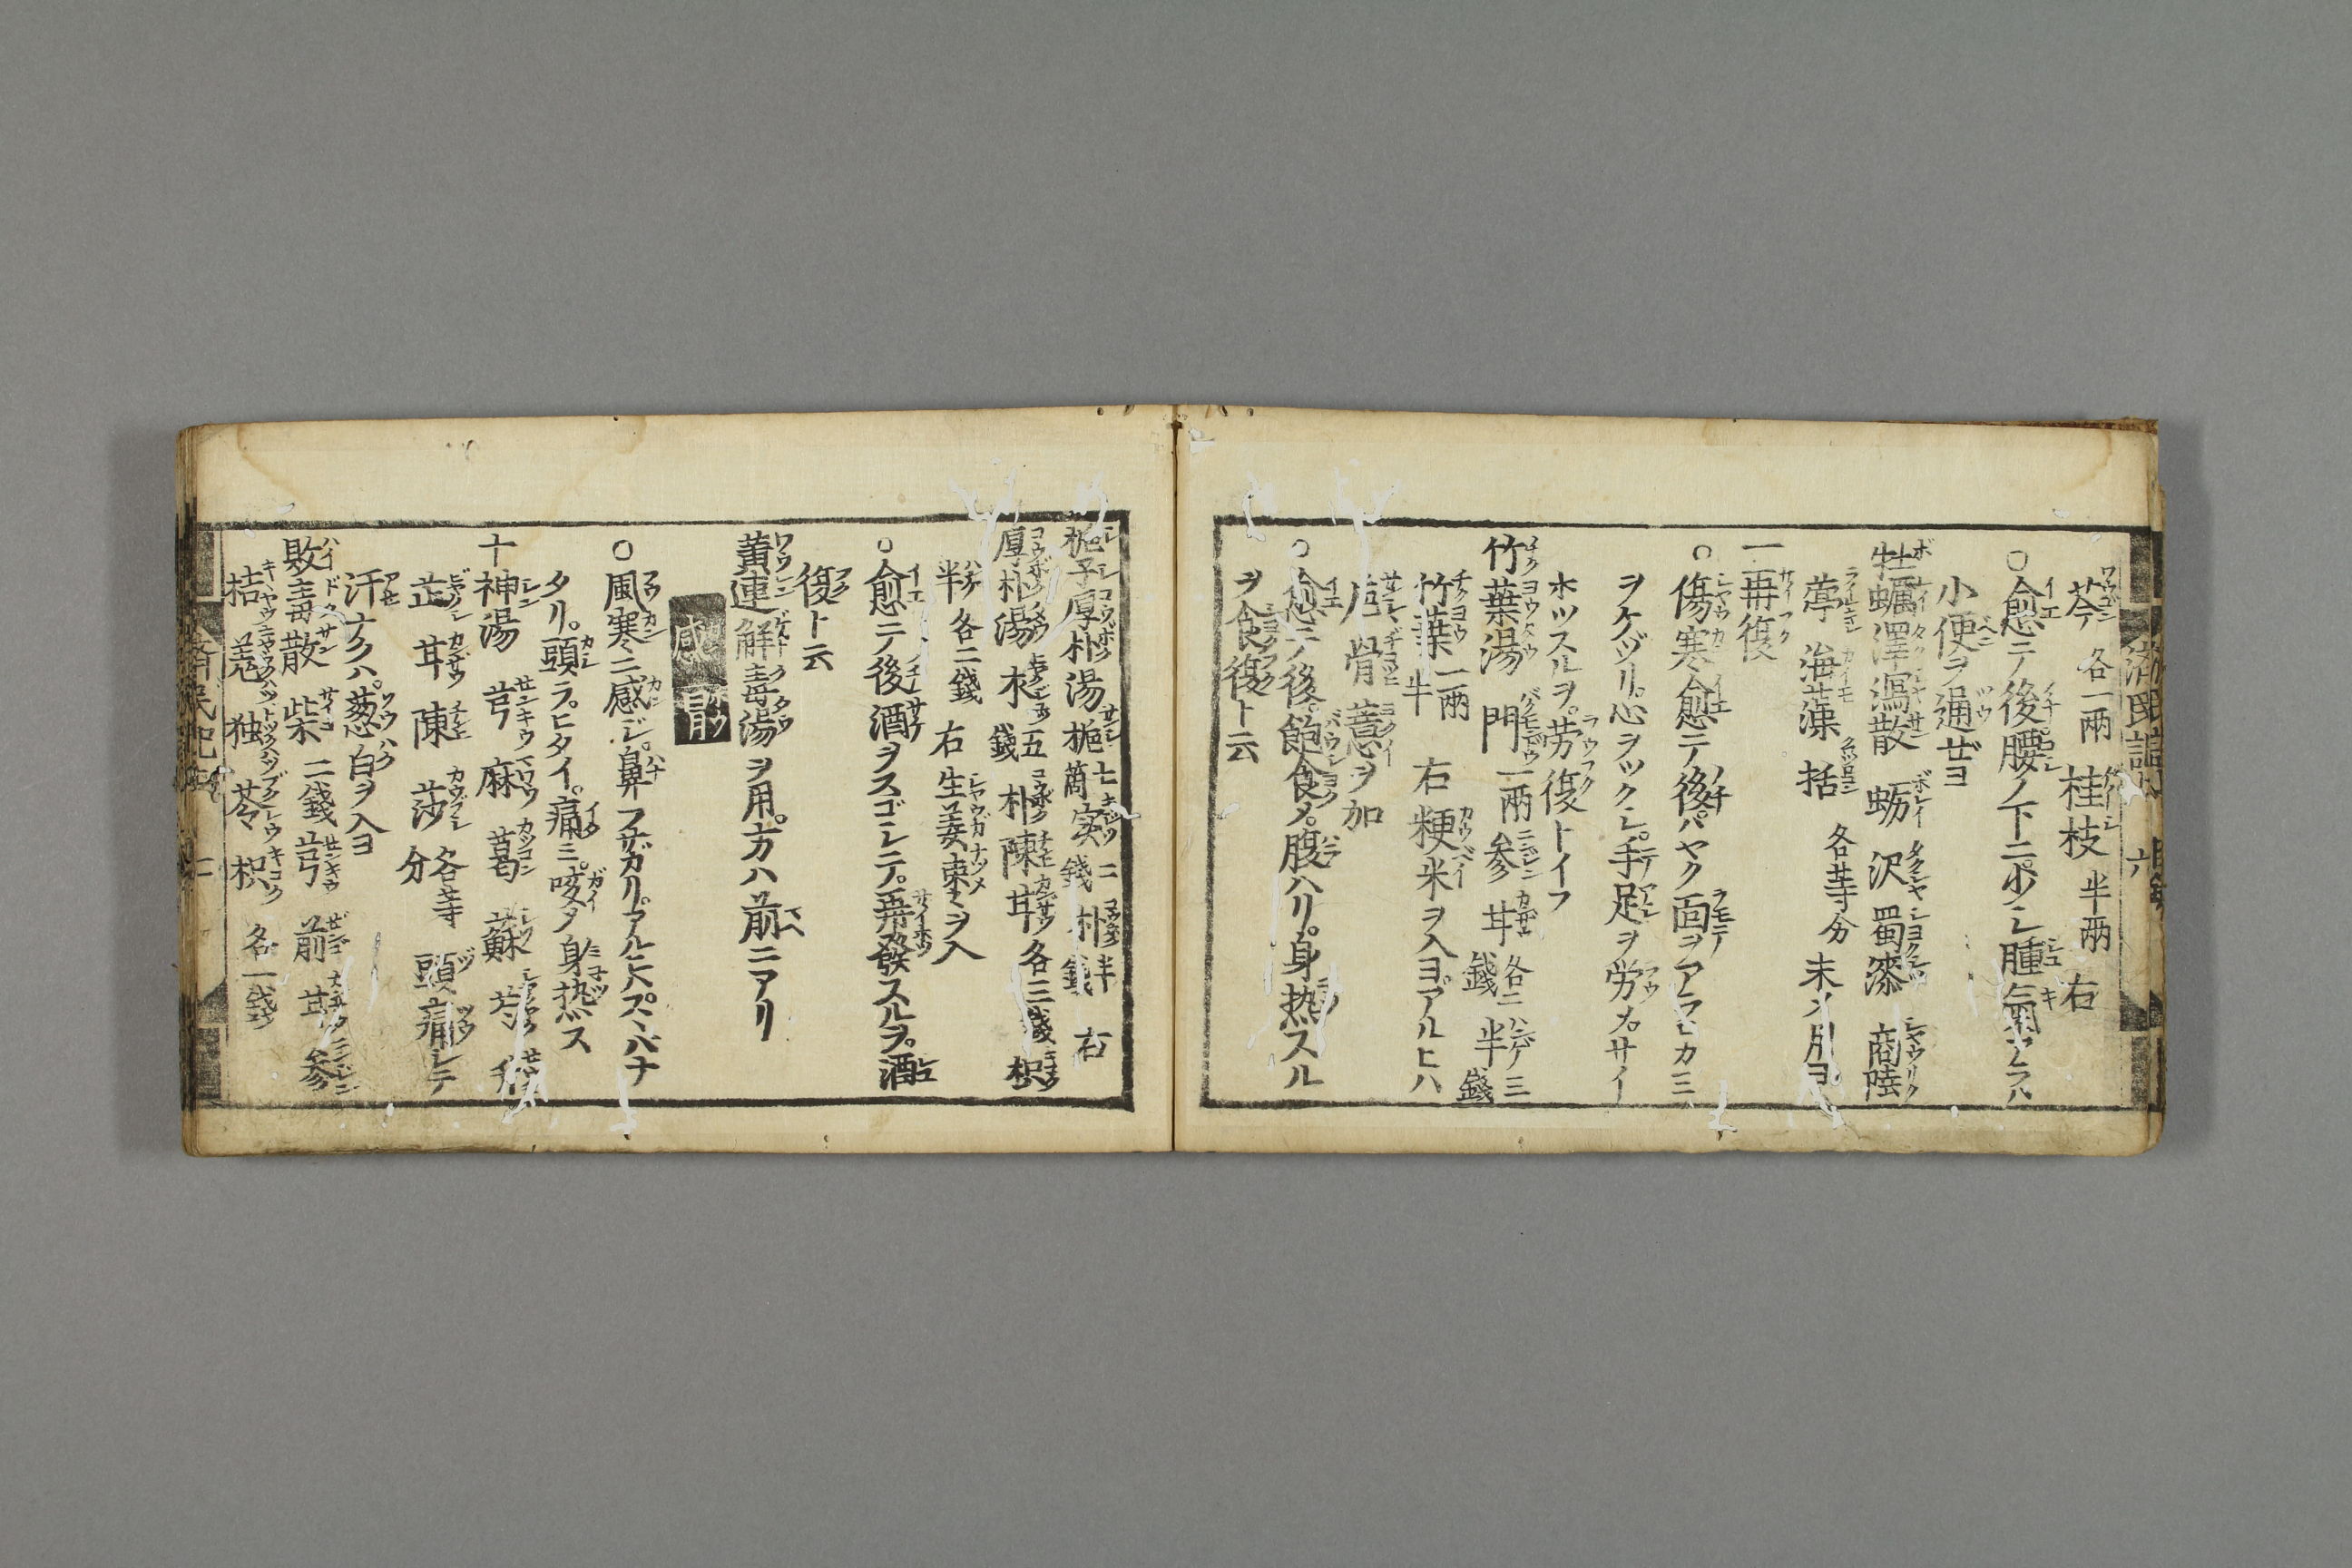 芩 各一兩 桂枝 半兩 右
○愈テ後腰ノ下ニ 腫氣アラハ
小便ヲ通ゼヨ
牡蠣澤瀉散 蛎 沢 蜀漆 商陸
葶 海藻 括 各等分 末 用ヨ
二再復
○傷寒愈テ後ハヤク面ヲアラヒカミ
ヲケヅリ心ヲツクシ手足ヲ労 サイ
ホツスルヲ労復トイフ
竹葉湯 門一兩 参 甘 各二錢 半 三錢
竹葉一兩半 右粳米ヲ入ヨアルヒハ
骨 薏ヲ加
○愈テ後飽食 腹ハリ身热スル
ヲ食復ト云
梔子厚朴湯 梔七箇 実二錢 朴 半錢 右
厚朴湯 木五錢 朴 陳 甘 各三錢 枳
半 各二錢 右生姜 ヲ入
○愈テ後酒ヲスゴシテ再發スルヲ酒
復ト云
黄連解毒湯ヲ用方ハ前ニアリ
感冒
○風寒ニ感ジ鼻フサガリアル ハナ
タリ頭 ヒタイ痛ミ咳 身热ス
十神湯 芎 麻 葛 蘇
芷 甘 陳 莎 各等分 頭痛シテ
汗 ハ葱白ヲ入ヨ
敗毒散 柴二錢 芎 前 甘 参
桔 羗 独 苓 枳 各一錢